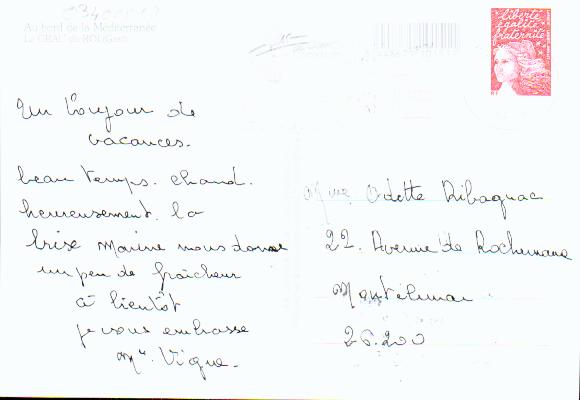 Au bord de la Méditerranée
Le GRAU du ROI (Gard)
liberté
égalité
fraternité
RF
Un bonjour de
vacances.
beau temps. chaud.
heureusement. la
brise marine nous donne
un peu de fraîcheur
à bientôt
je vous embrasse
Odette
22. Avenue de Rochemaure
Montélimar
26.200